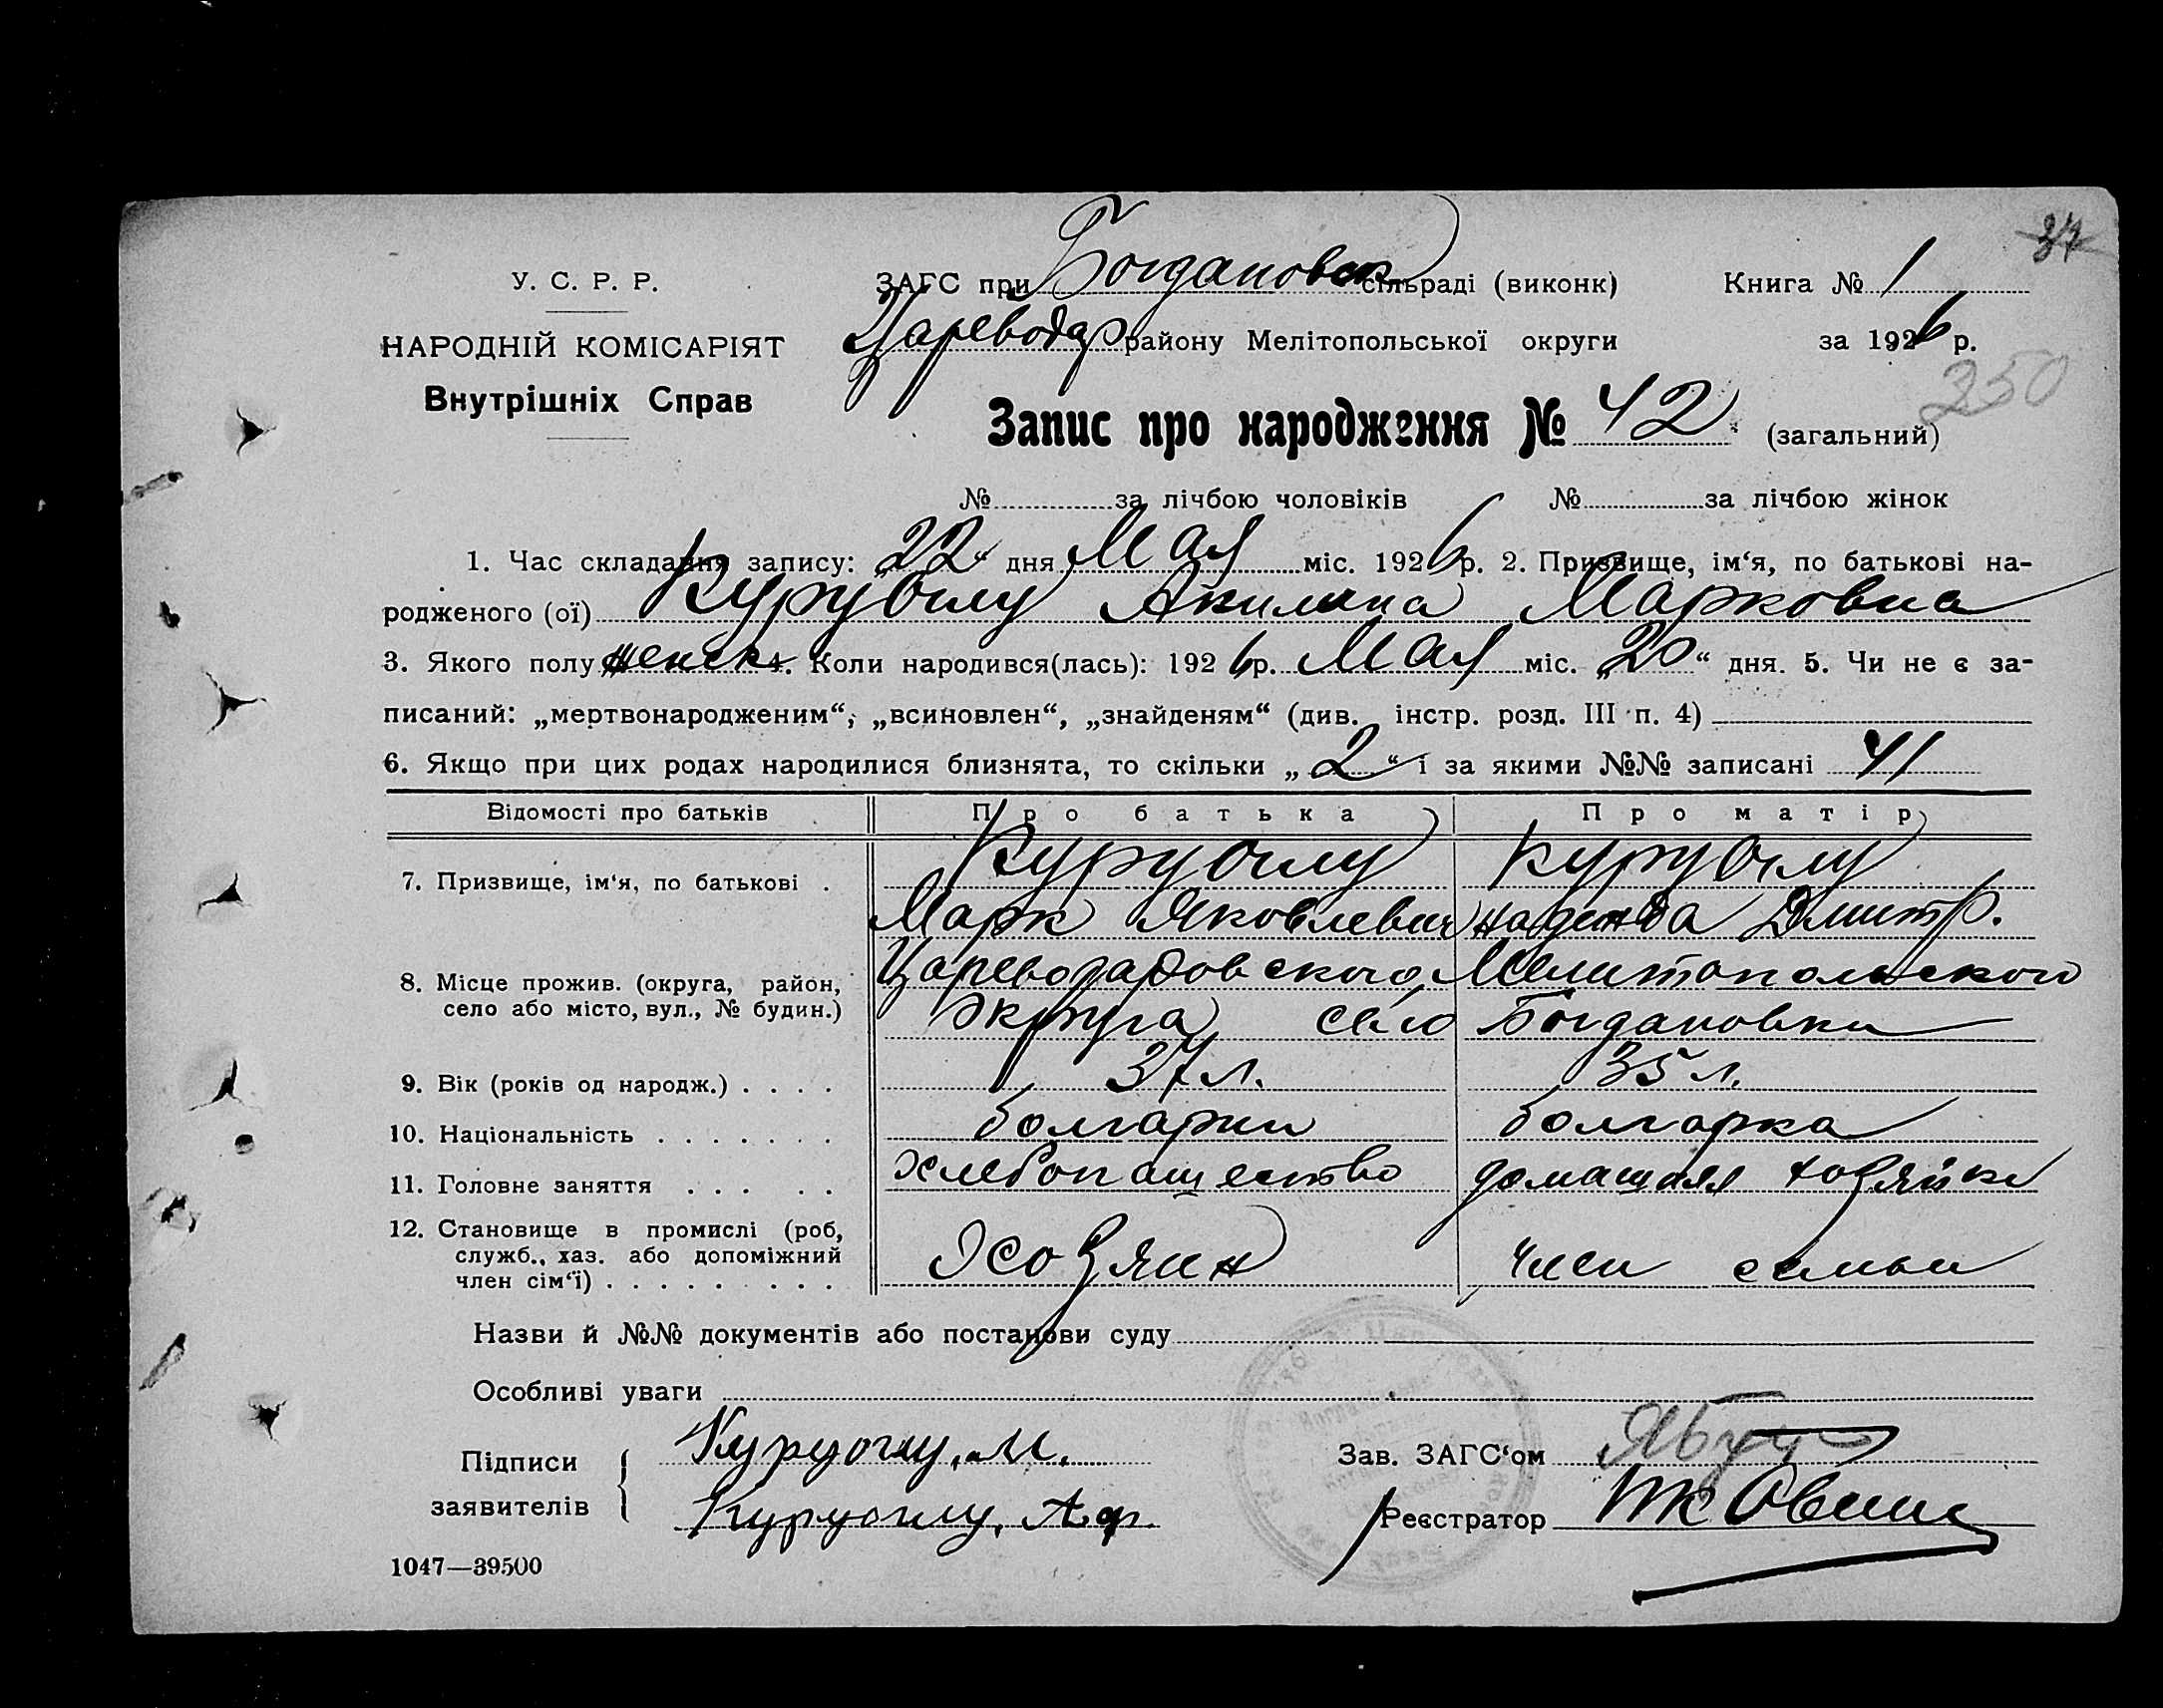 37
У. С. Р. Р.
ЗАГС при Богдановск сільраді (виконк)
Книга № 1
НАРОДНІЙ КОМІСАРІЯТ
Царевода району Мелітопольської округи
за 1926 р.
Внутрішніх Справ
250
Запис про народження № 42 (загальний)
№ за лічбою чоловіків № за лічбою жінок
1. Час складання запису: „22“ дня Мая міс. 1926 р. 2. Призвище, ім‘я, по батькові на-
родженого (ої) Куруоглу Акилина Марковна
3. Якого полу женск 4. Коли народився(лась): 1926 р. Мая міс. „20“ дня. 5. Чи не є за-
писаний: „мертвонародженим“, „всиновлен“, „знайденям“ (див. інстр. розд. III п. 4)
6. Якщо при цих родах народилися близнята, то скільки „2“ і за якими №№ записані 41
Відомості про батьків Про батька Про матір
7. Призвище, ім‘я, по батькові . Куруоглу Куруоглу
Марк Яковлевич надежда Дмитр.
8. Місце прожив. (округа, район, Мелитопольского
село або місто, вул., № будин.) Округа село Богдановки
9. Вік (років од народж.) . . . . 37 л. 35 л.
10. Національність . . . . . . . болгарин болгарка
11. Головне заняття . . . . . хлебопашество домашняя хозяйка
12. Становище в промислі (роб,
служб., хаз. або допоміжний Хозяин член семьи
член сім‘ї) . . . . . . . . .
Назви й №№ документів або постанови суду
Особливі уваги
Підписи Куруоглу. М. Зав. ЗАГС‘ом
заявителів Куруоглу. Аф. Реєстратор
1047—39500